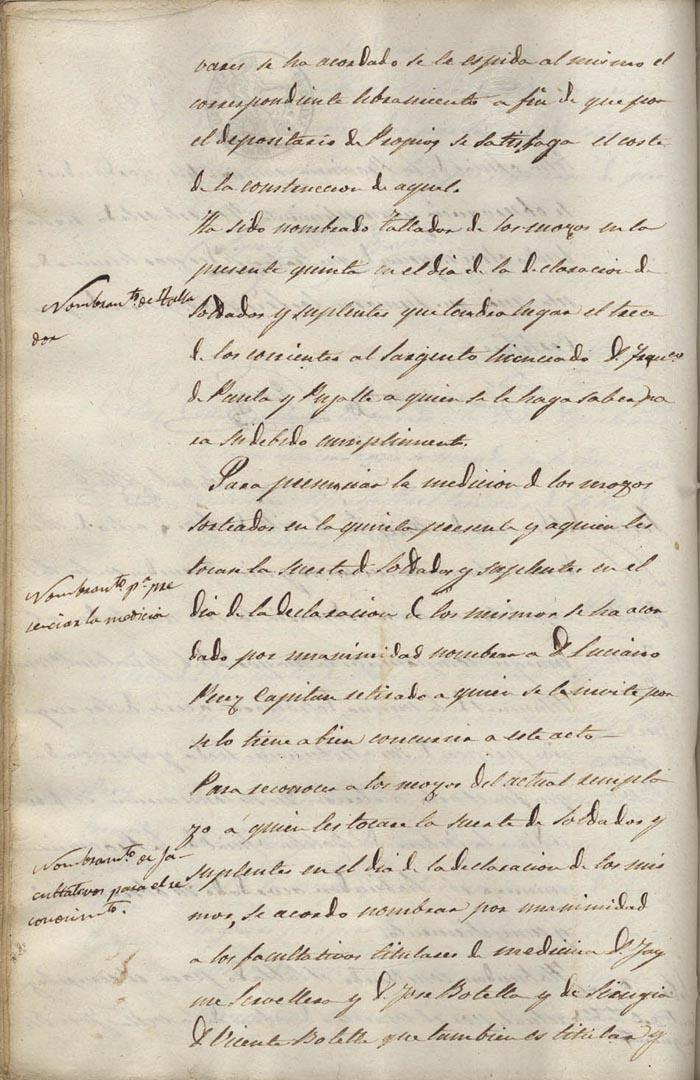 vares se ha acordado se le espida al mismo el
correspondiente libramiento a fin de que por
el depositario de Propios se satisfaga el coste
de la construccion de aquel.
Nombramto. de Talla
dor
Ha sido nombrado Tallador de los mozos en la
presente quinta en el dia de la declaracion de
Soldados y suplentes que tendra lugar el trece
de los corrientes al Sargento licenciado D. Franco.
de Paula y Pujalte a quien se le haga saber pa
ra su debido cumplimiento.
Nombramto. pa. pre
senciar la medicion
Para presenciar la medicion de los mozos
sorteados en la quinta presente y a quien les
tocan la suerte de Soldados y suplentes en el
dia de la declaracion de los mismos se ha acor
dado por unanimidad nombrar a D. Luciano
Capitan retirado a quien se le invite por
si lo tiene a bien concurrir a este acto
Nombramto. de fa-
cultativos para el re
conocimto.
Para reconocer a los mozos del actual rempla
zo á quien les tocare la suerte de Soldados y
suplentes en el dia de la declaracion de los mis
mos, se acordo nombrar por unanimidad
a los facultativos titulares de medicina D. Jay
me y D. Jose Botella y de Sirugia
D. Vicente Botella que tambien es titular y